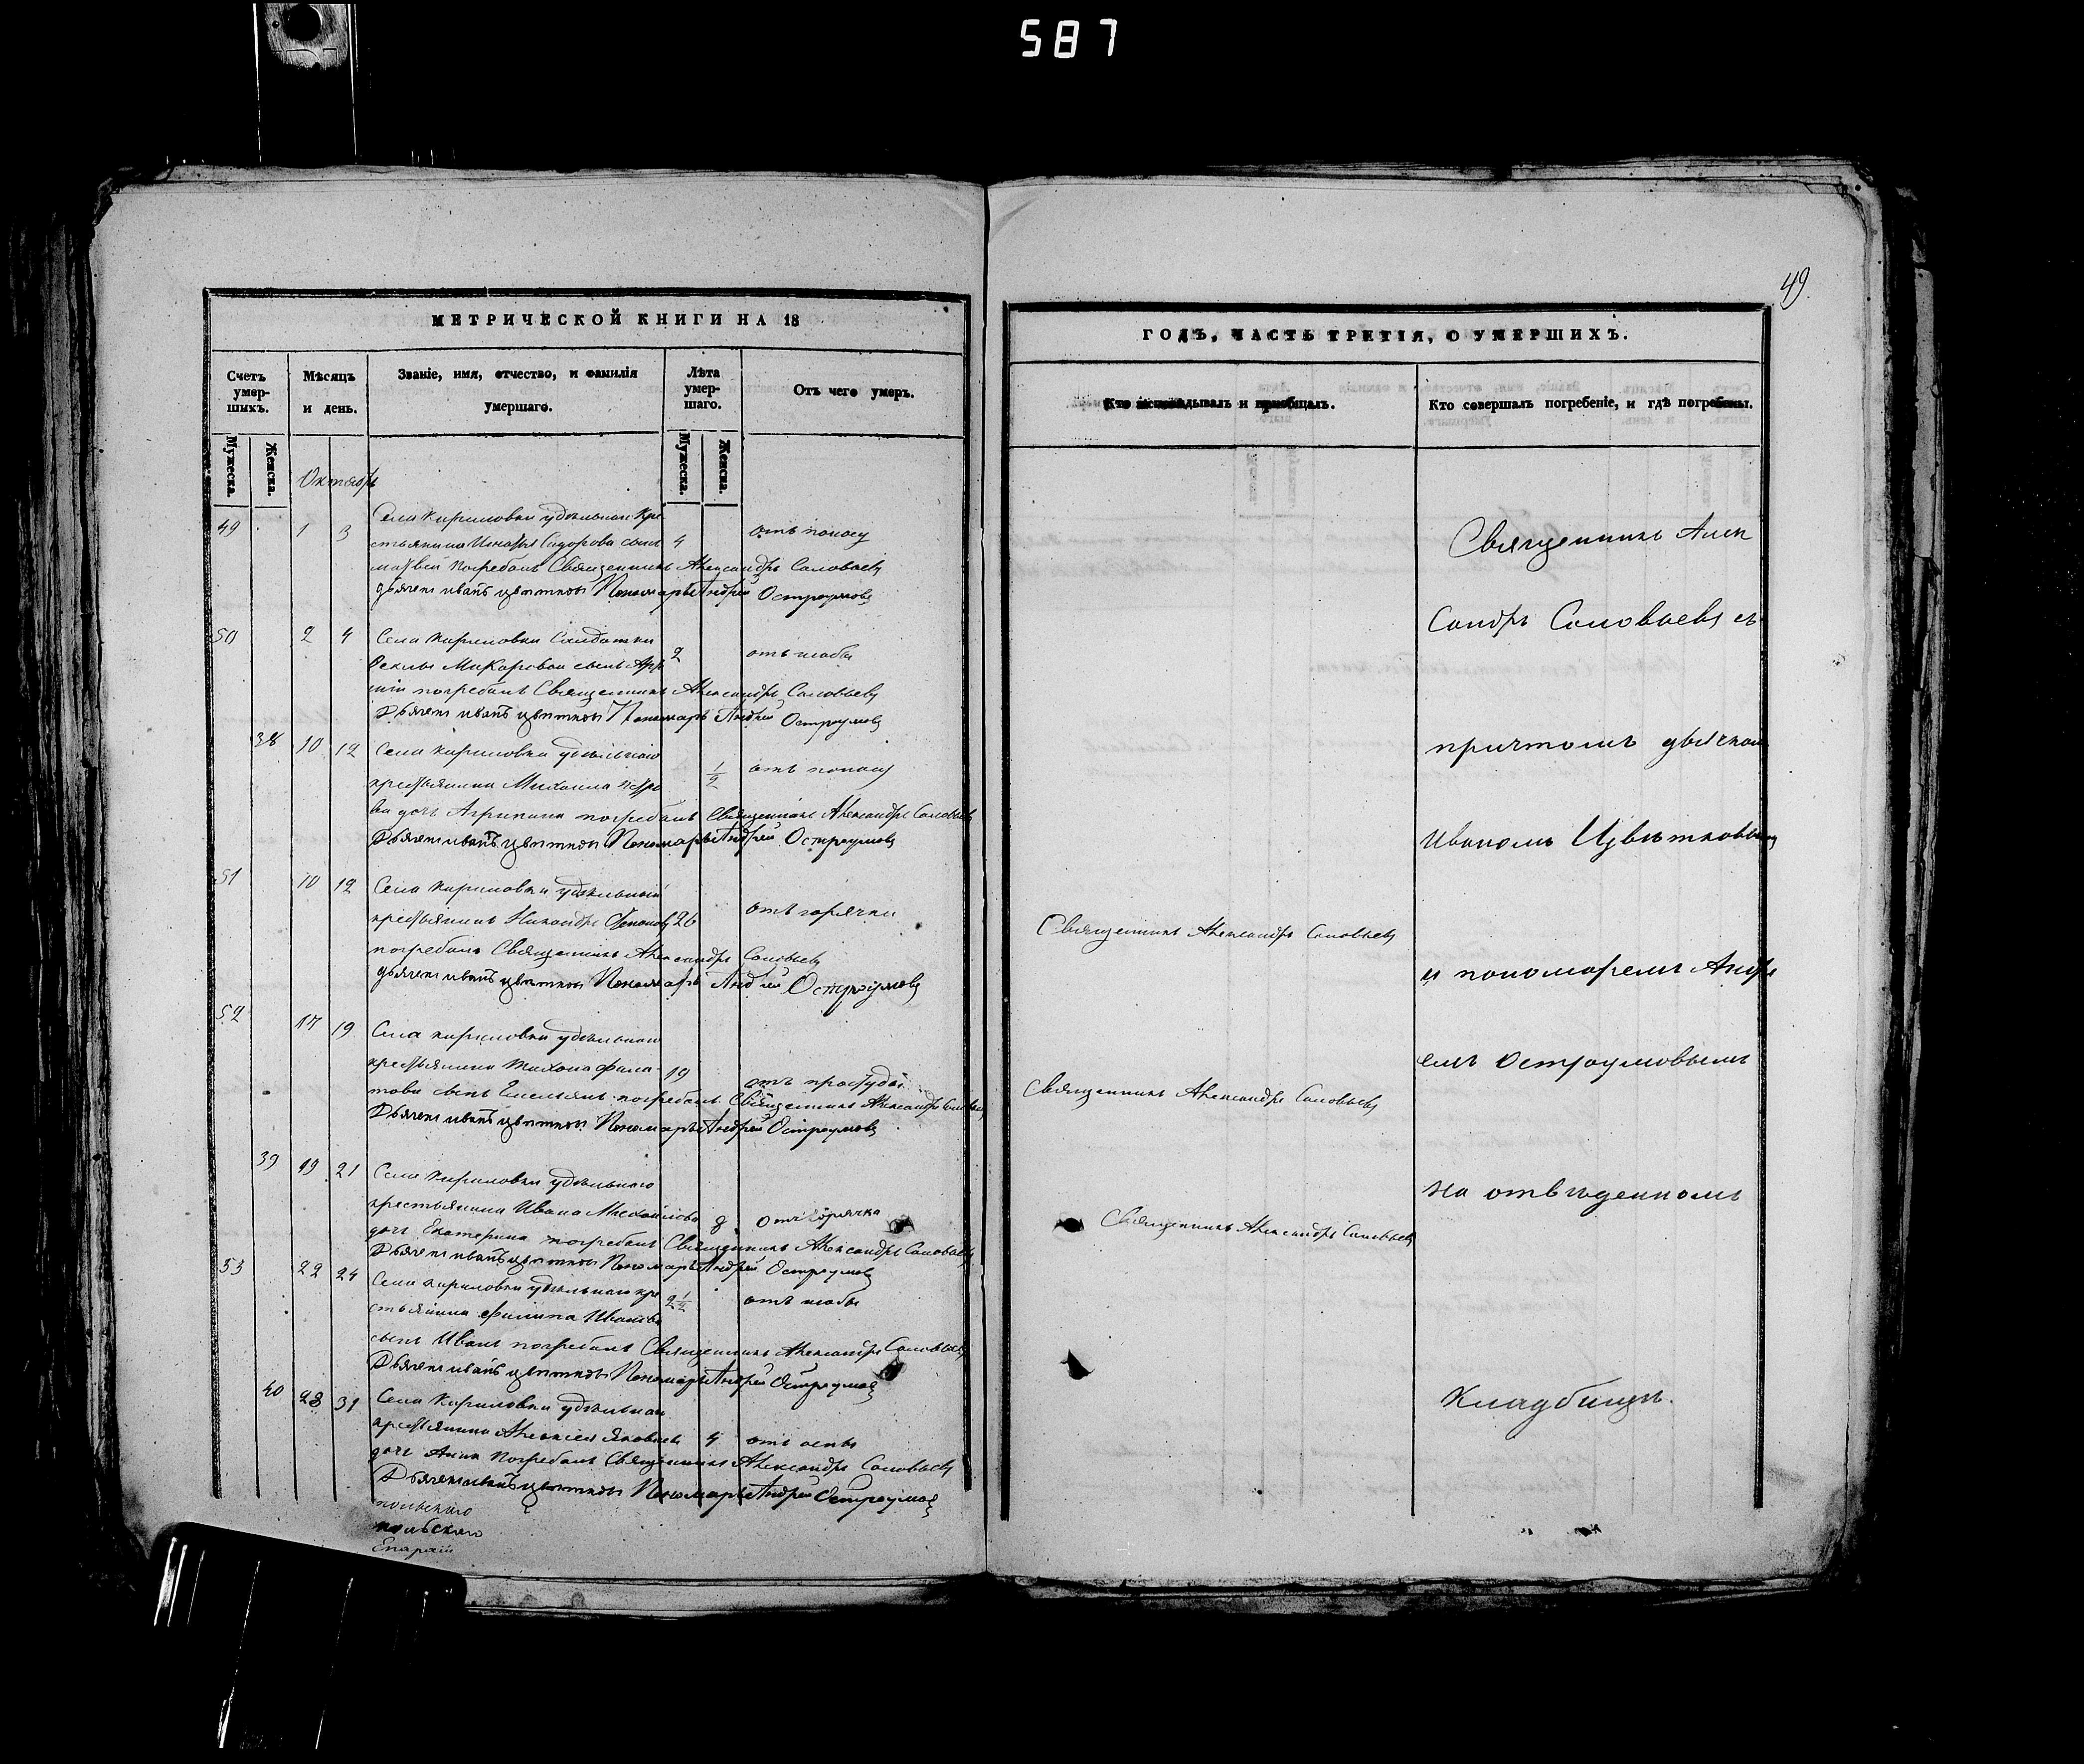 587
49.
МЕТРИЧЕСКОЙ КНИГИ НА 18
Счетъ умер-шихъ.
Мѣсяцъ и день.
Званіе, имя, отчество, и фамилія умершаго.
Лѣта умер-шаго.
Отъ чего умеръ.
Мужеска.
Женска.
Мужеска.
Женска.
Октябрь
49 1 3 Села Кириловки удѣльнаго кре
стьянина Сидорова сынъ 4 отъ поносу
матвей погребалъ Священникъ Александръ Соловьевъ
дьячекъ иванъ цветковъ Пономарь Андрей Остроумовъ
50 2 4 Села Кириловки Салдатки
Феклы Макаровой сынъ 2 отъ зноба
погребалъ Священникъ Александръ Соловьевъ
Дьячекъ иванъ цветковъ Пономарь Андрей Остроумовъ
38 10 12 Села Кириловки удѣльнаго
крестьянина Михаила Петро 1/2 отъ поносу
ва дочь Агрипина погребалъ Священникъ Александръ Соловьевъ
Дьячекъ иванъ цветковъ Пономарь Андрей Остроумовъ
51 10 12 Села Кириловки удѣльный
крестьянинъ 26 отъ горячки
погребалъ Священникъ Александръ Соловьевъ
дьячекъ иванъ цветковъ Пономарь Андрей Остроумовъ
52 17 19 Села кириловки удѣльнаго
крестьянина Тихона Фила 19 отъ простуды
това сынъ Емельянъ погребалъ Священникъ Александръ Соловьевъ
Дьячекъ иванъ цветковъ Пономарь Андрей Остроумовъ
39 19 21 Села Кириловки удѣльнаго
крестьянина Ивана Михайлова 8 отъ горячка
дочь Екатерина погребалъ Священникъ Александръ Соловьевъ
Дьячекъ иванъ цветковъ Пономарь Андрей Остроумовъ
53 22 24 Села кириловки удѣльнаго кре
стьянина Филипа Иванова 2 1/2 отъ зноба
сынъ Иванъ погребалъ Священникъ Александръ Соловьевъ
Дьячекъ иванъ цветковъ Пономарь Андрей Остроумовъ
40 28 31 Села Кириловки удѣльнаго
крестьянина Алексея Яковлева 4 отъ оспы
дочь Анна погребалъ Священникъ Александръ Соловьевъ
Дьячекъ иванъ цветковъ Пономарь Андрей Остроумовъ
Епархіи
ГОДЪ, ЧАСТЬ ТРЕТІЯ, О УМЕРШИХЪ.
Кто исповѣдывалъ и приобщалъ.
Кто совершалъ погребеніе, и гдѣ погребены.
Священникъ Александръ Соловьевъ
Священникъ Александръ Соловьевъ
Священникъ Александръ Соловьевъ
Священникъ Алек
сандръ Соловьевъ съ
причтомъ дьячкомъ
Иваномъ Цвѣтковымъ
и пономаремъ Андре
емъ Остроумовымъ
на отведенномъ
Кладбище.